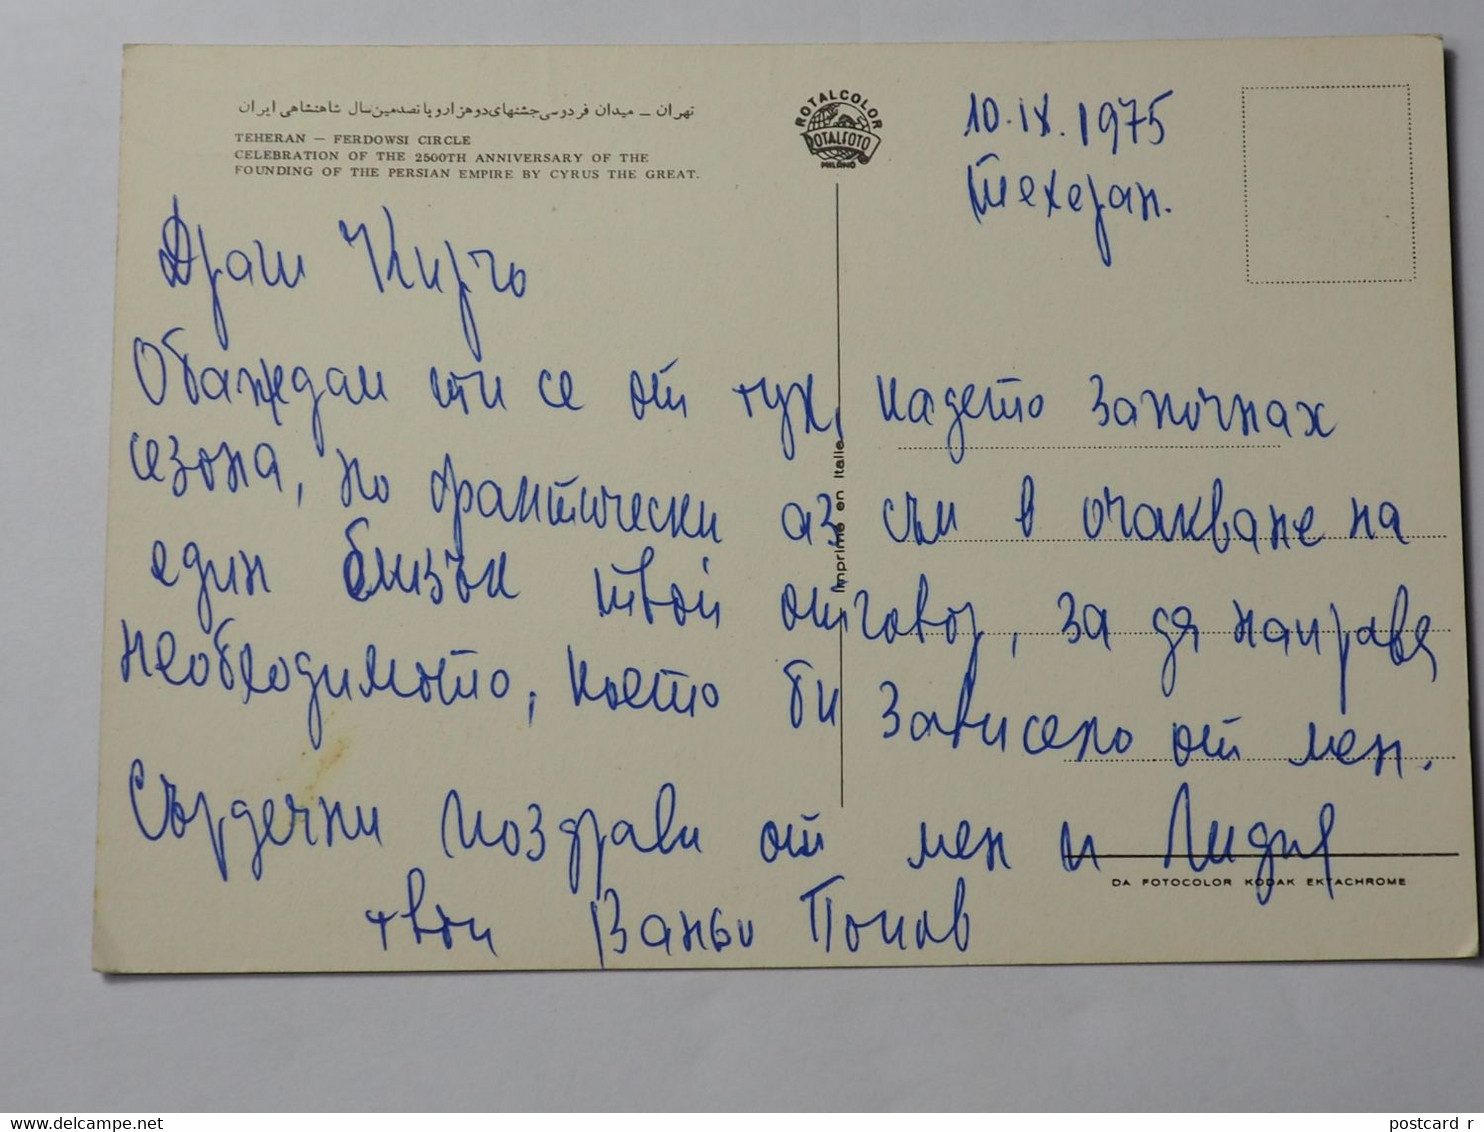 تهران ـ میدان فردوسی جشنهای دو هزار و پانصدمین سال شاهنشاهی ایران
TEHERAN — FERDOWSI CIRCLE
CELEBRATION OF THE 2500TH ANNIVERSARY OF THE
FOUNDING OF THE PERSIAN EMPIRE BY CYRUS THE GREAT.
ROTALCOLOR
ROTALFOTO
MILANO
10.IX.1975
Техеран.
Драги Кирчо
Обаждам ти се от тук, кадето започнах
сезона, но фактически аз съм в очакване на
един близък твой отговор, за да направя
необходимото, което би зависело от мен.
Сърдечни поздрави от мен и Лидия
твой Ваньо Попов
Imprimé en Italie
DA FOTOCOLOR KODAK EKTACHROME
postcard r